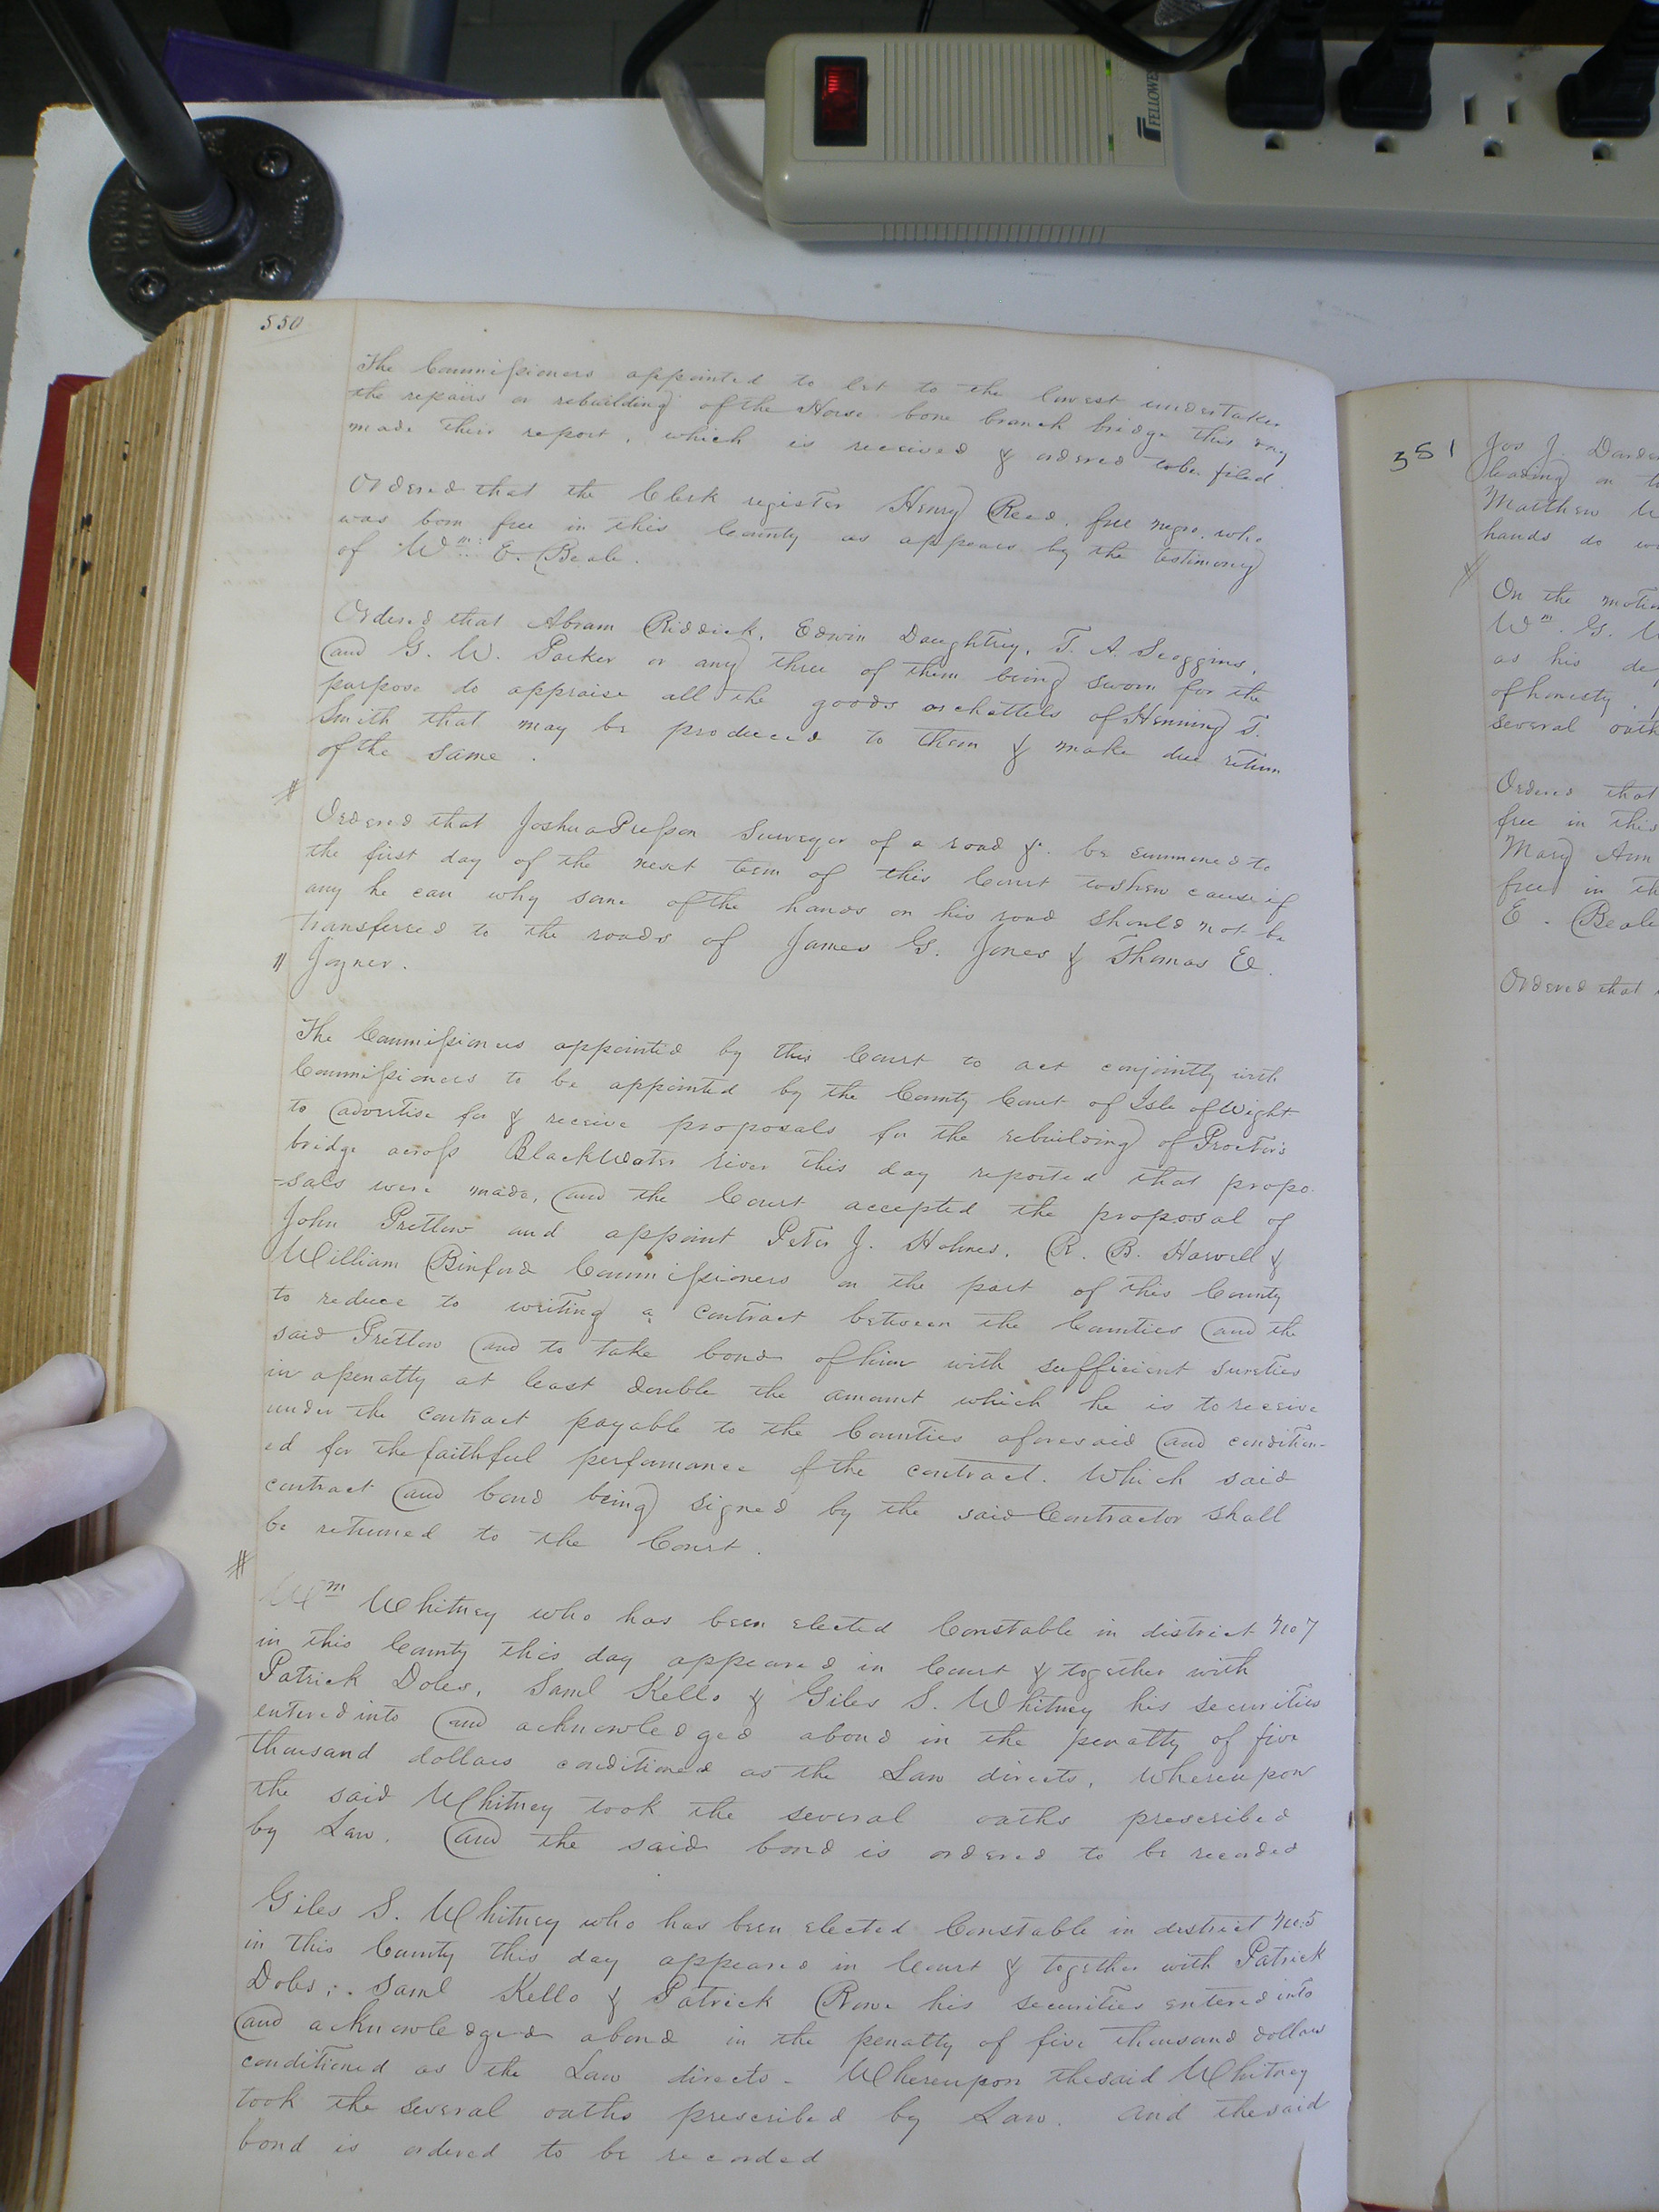 FELLOWES
550
The Commissioners appointed to let to the lowest undertaker
the repairs or rebuilding of the Horse bone branch bridge this day
made their report, which is received & ordered to be filed.
Ordered that the Clerk register Henry Reed, free negro, who
was born free in this County as appears by the testimony
of Wm. E. Beale.
Ordered that Abram Riddick, Edwin Daughtry, T. A. Scoggins,
and G. W. Parker or any three of them being sworn for the
purpose do appraise all the goods or chattels of Henning T.
Smith that may be produced to them & make due return
of the same.
#
Ordered that Joshua Presson Surveyor of a road &c. be summoned to
the first day of the next term of this Court to shew cause if
any he can why some of the hands on his road should not be
transferred to the roads of James G. Jones & Thomas E.
" Joyner.
The Commissioners appointed by this Court to act conjointly with
Commissioners to be appointed by the County Court of Isle of Wight
to advertise for & receive proposals for the rebuilding of Proctor's
bridge across BlackWater river this day reported that propo-
-sals were made, and the Court accepted the proposal of
John Pretlow and appoint Peter J. Holmes, R. B. Harvell &
William Binford Commissioners on the part of this County
to reduce to writing a contract between the Counties and the
said Pretlow and to take bond of him with sufficient sureties
in a penalty at least double the amount which he is to receive
under the contract payable to the Counties aforesaid and condition-
ed for the faithful performance of the contract. Which said
contract and bond being signed by the said Contractor shall
be returned to the Court.
#
Wm Whitney who has been elected Constable in district No 7
in this County this day appeared in Court & together with
Patrick Doles, Saml Kello & Giles S. Whitney his securities
entered into and acknowledged a bond in the penalty of five
thousand dollars conditioned as the Law directs, Whereupon
the said Whitney took the several oaths prescribed
by Law. and the said bond is ordered to be recorded
Giles S. Whitney who has been elected Constable in district No. 5
in this County this day appeared in Court & together with Patrick
Doles, Saml Kello & Patrick Rowe his securities entered into
and acknowledged a bond in the penalty of five thousand dollars
conditioned as the Law directs - Whereupon the said Whitney
took the several oaths prescribed by Law. And the said
bond is ordered to be recorded
351
Jos J. Darden
leading on
Matthew
hands do
On the motion
Wm. G.
as his
of honesty,
several oath
Ordered that
free in this
Mary Ann
free in
E. Beale
Ordered that